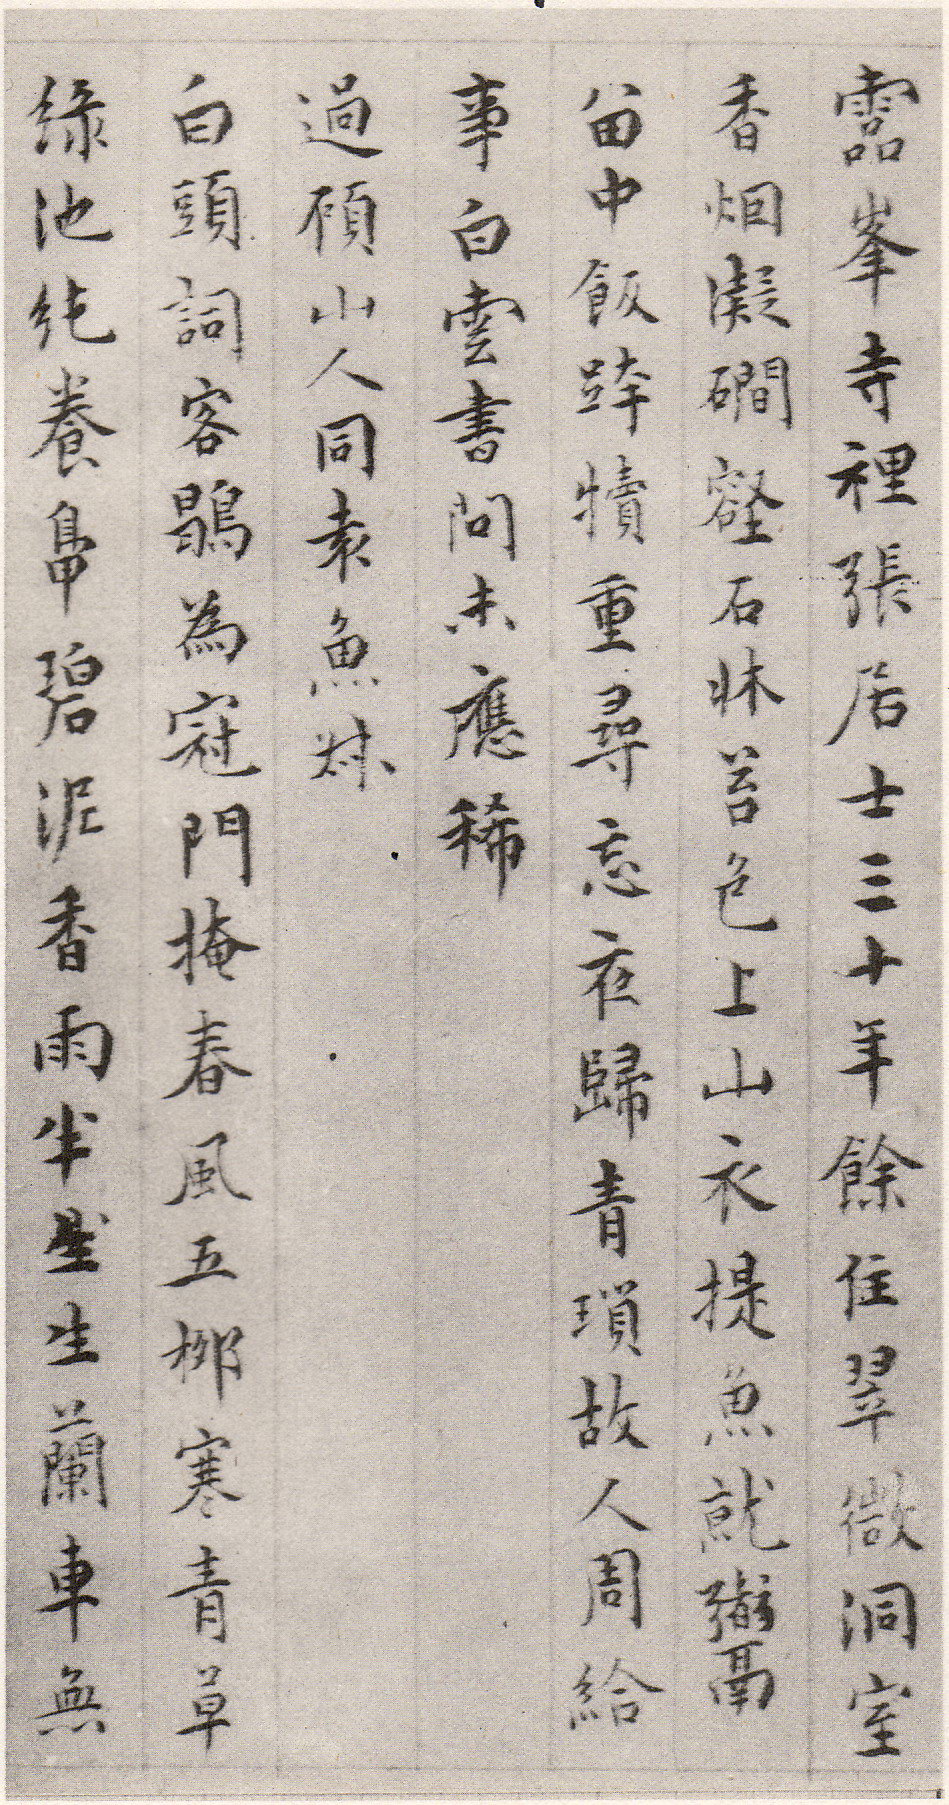 靈峯寺裡張居士三十年餘住翠微洞室
香烟凝磵壑石牀苔色上山衣提魚就鬻
留中飯跨犢重尋忘夜歸青瑣故人周給
事白雲書問未應稀
過頋山人同袁魚
白頭詞客鶡為冠門掩春風五柳寒青草
緑池純養鴨碧泥香雨半生蘭車無